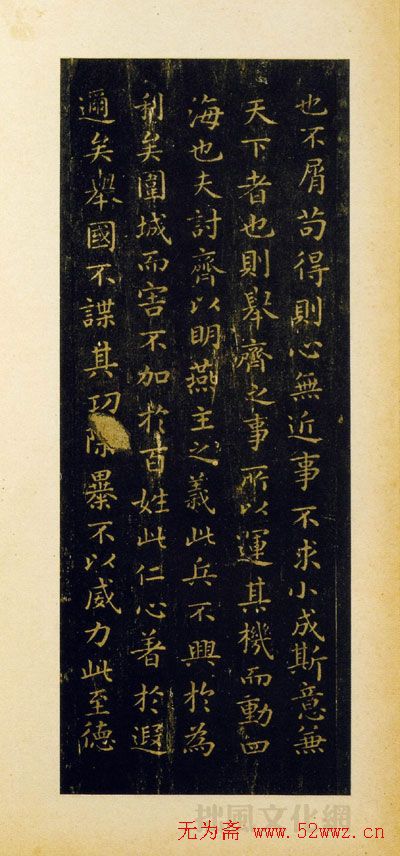 也不屑苟得則心無近事不求小成斯意兼
天下者也則舉齊之事所以運其機而動四
海也夫討齊以明燕主之義此兵不興於為
利矣圍城而害不加於百姓此仁心著於遐
邇矣舉國不謀其功除暴不以威力此至德
拙風文化網
无为斋 www.52wwz.cn